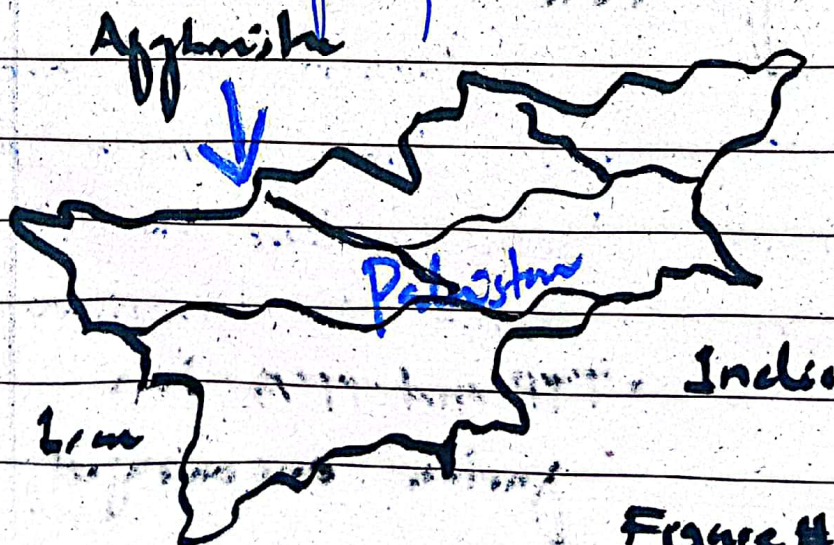 Afghnistn
Pakistan
India
Iran
Figure #